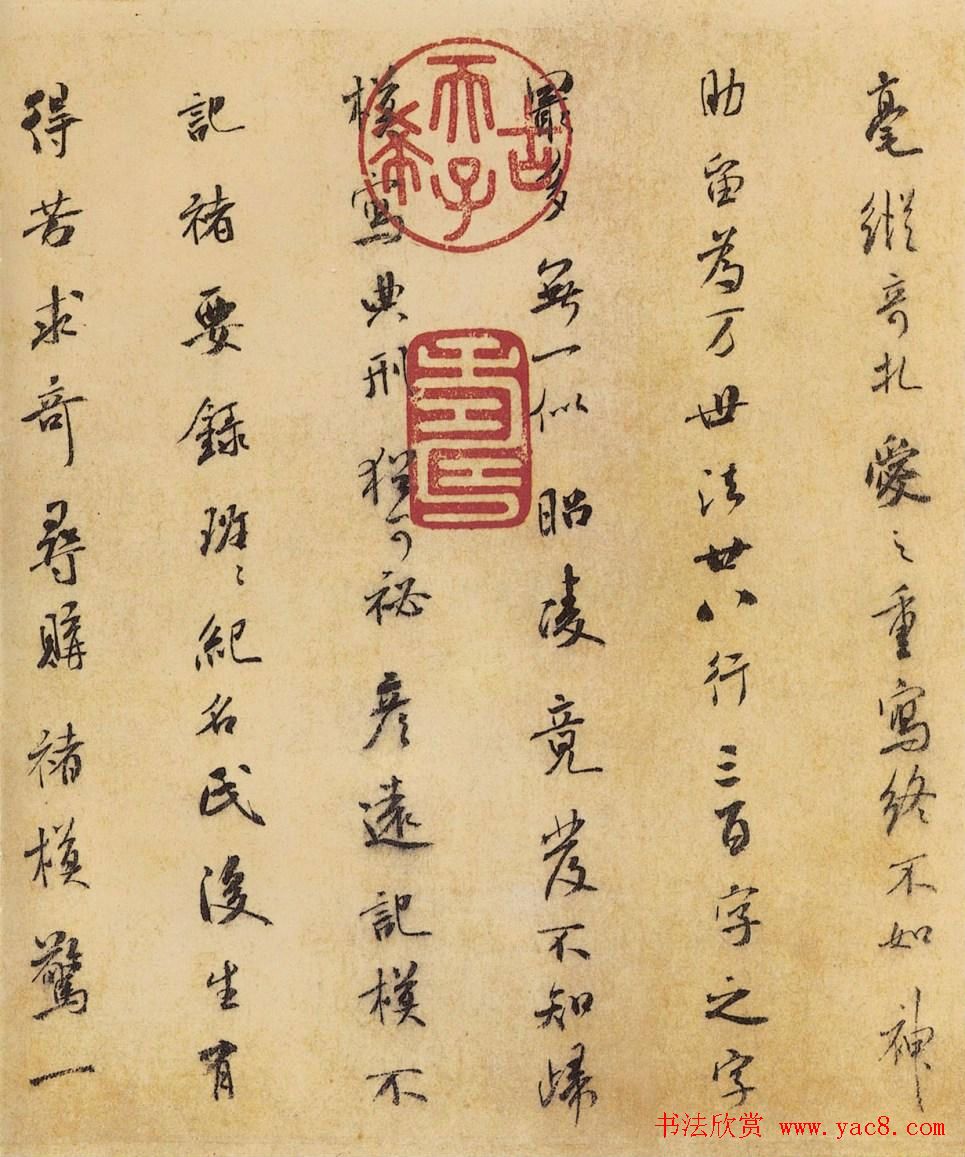 毫縱奇札愛之重寫終不如神
助留為万世法廿八行三百字之字
最多無一似昭陵竟發不知歸
模寫典刑猶可秘彦遠記模不
記褚要錄班〻紀名氏後生有
得苦求奇尋購褚模驚一
古希天子
壽
书法欣赏 www.yac8.com